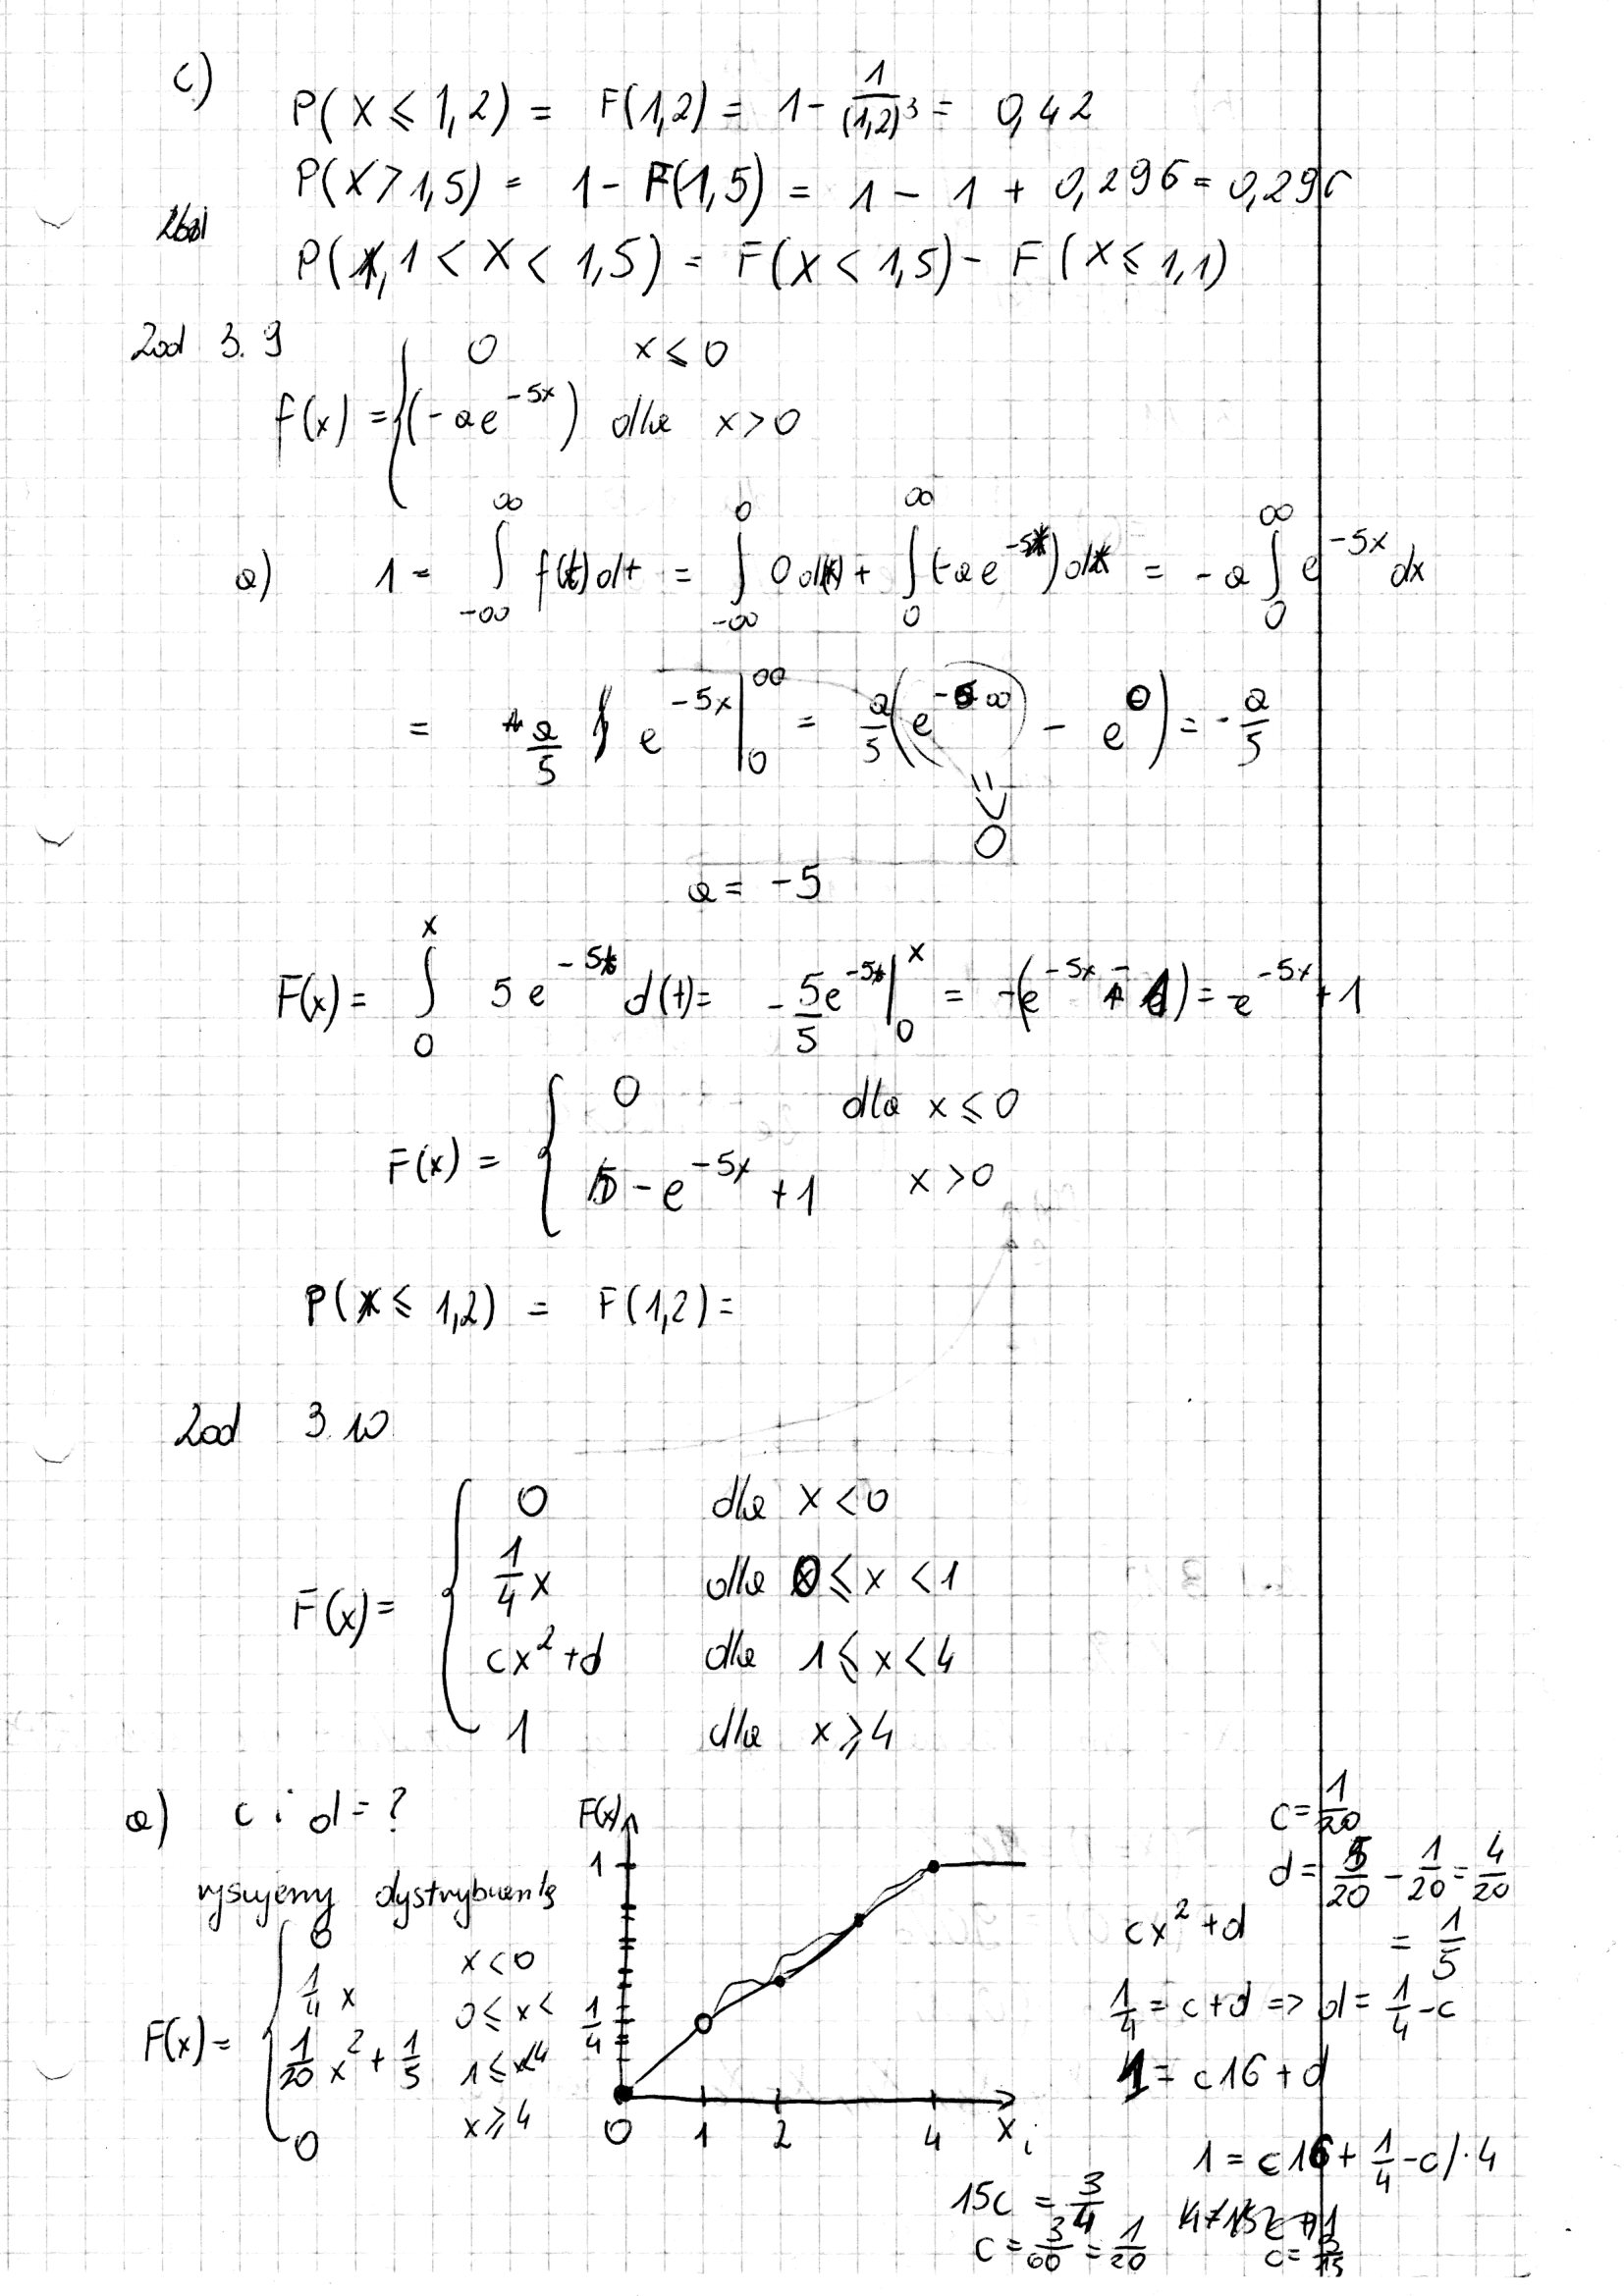 c)
P(X ≤ 1,2) = F(1,2) = 1 - 1/(1,2)³ = 0,42
P(X > 1,5) = 1 - F(1,5) = 1 - 1 + 0,296 = 0,296
P(1,1 < X < 1,5) = F(X < 1,5) - F(X ≤ 1,1)
Zad 3.9
f(x) = { 0 x ≤ 0
(-ae^{-5x}) dla x > 0
a) 1 = ∫_{-∞}^{∞} f(t)dt = ∫_{-∞}^{0} 0 d(t) + ∫_{0}^{∞} (-ae^{-5x}) dx = -a ∫_{0}^{∞} e^{-5x} dx
= a/5 e^{-5x} |_{0}^{∞} = a/5 (e^{-∞} - e^{0}) = -a/5
= 0
a = -5
F(x) = ∫_{0}^{x} 5e^{-5t} d(t) = -5/5 e^{-5t} |_{0}^{x} = -(e^{-5x} - 1) = -e^{-5x} + 1
F(x) = { 0 dla x ≤ 0
-e^{-5x} + 1 x > 0
P(X ≤ 1,2) = F(1,2) =
Zad 3.10
F(x) = { 0 dla x < 0
1/4 x dla 0 ≤ x < 1
cx² + d dla 1 ≤ x < 4
1 dla x ≥ 4
a) c i d = ?
rysujemy dystrybuantę
F(x) = { 0 x < 0
1/4 x 0 ≤ x <
1/20 x² + 1/5 1 ≤ x < 4
0 x ≥ 4
F(x)
1
1/4
0 1 2 4 x_i
c = 1/20
d = 5/20 - 1/20 = 4/20
= 1/5
cx² + d
1/4 = c + d => d = 1/4 - c
1 = c16 + d
1 = c16 + 1/4 - c /·4
15c = 3/4
c = 3/60 = 1/20